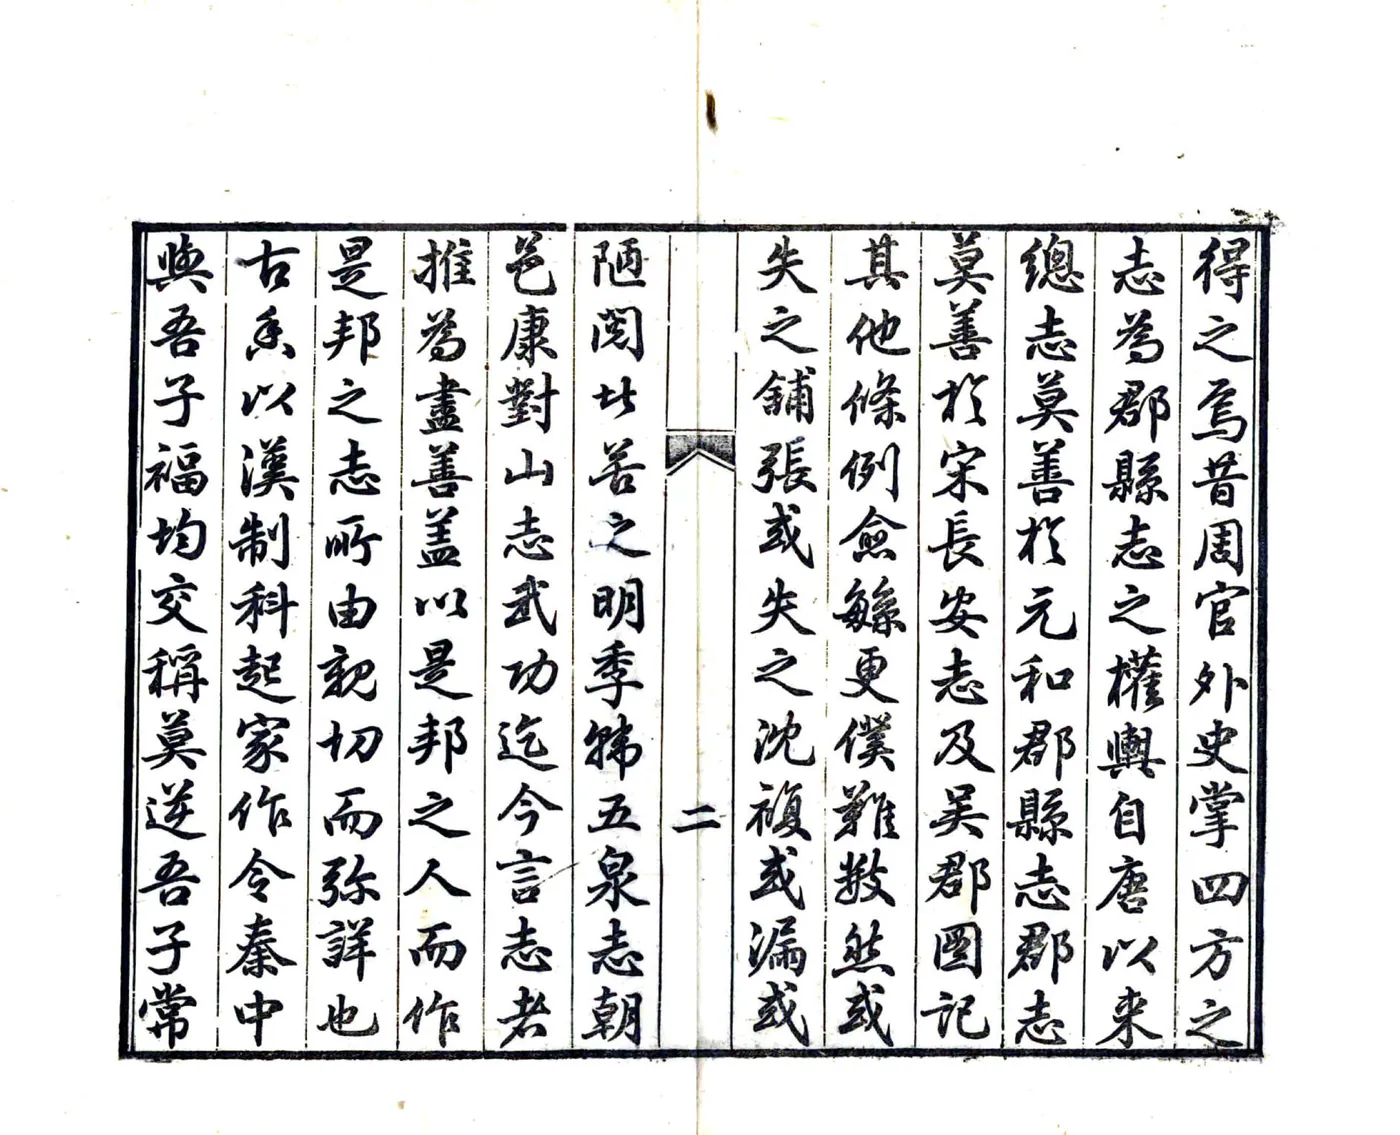 得之焉昔周官外史掌四方之
志為郡縣志之權輿自唐以来
總志莫善於元和郡縣志郡志
莫善於宋長安志及吴郡圖記
其他條例僉繇更僕難數然或
失之鋪張或失之沈複或漏或
二
陋閱比苦之明季韩五泉志朝
邑康對山志武功迄今言志者
推為盡善盖以是邦之人而作
是邦之志所由親切而弥詳也
古香以漢制科起家作令秦中
與吾子福均交稱莫逆吾子常